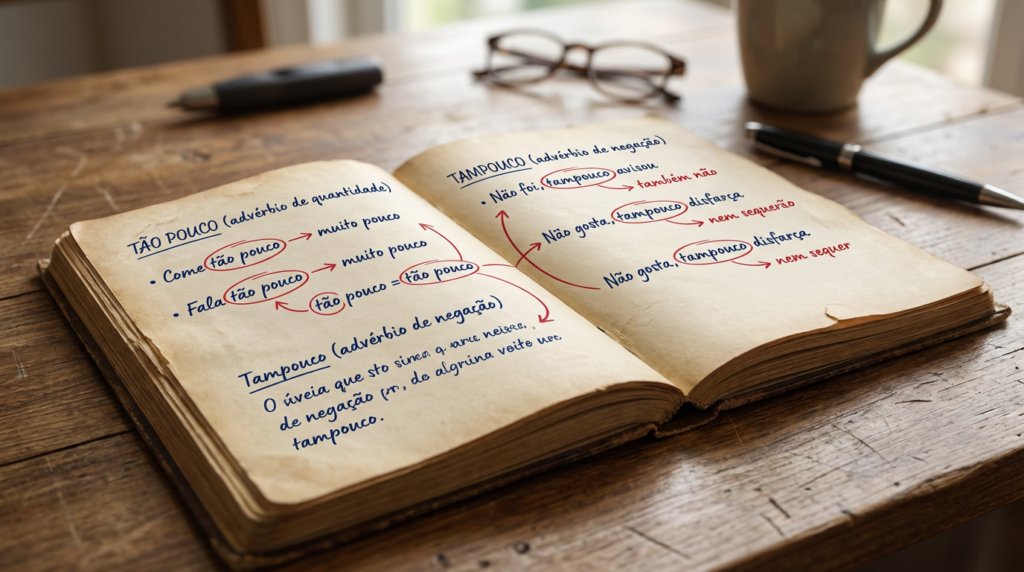 TÃO POUCO (advérbio de quantidade)
• Come tão pouco → muito pouco
• Fala tão pouco → muito pouco
tão pouco = tão pouco
Tampouco (advérbio de negação)
O úveia que sto
de negação de algrina voite
tampouco.
TAMPOUCO (advérbio de negação)
• Não foi, tampouco avisou
também não
Não gosto, tampouco disfarça
nem sequerão
Não gosta, tampouco disfarça
nem sequer